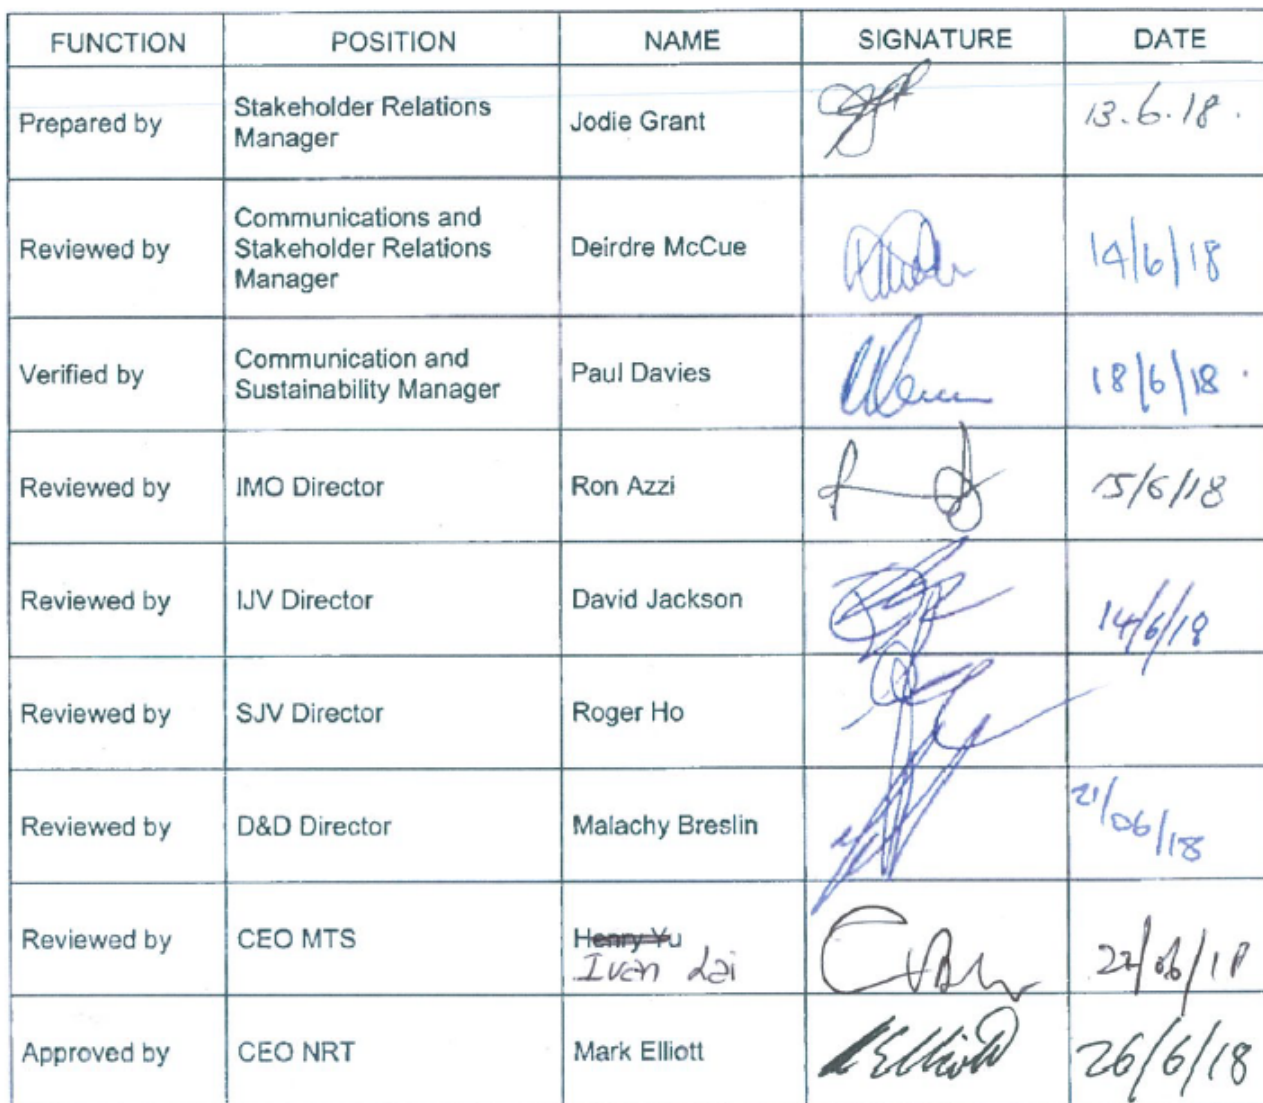 FUNCTION POSITION NAME SIGNATURE DATE
Prepared by Stakeholder Relations Manager Jodie Grant 13.6.18.
Reviewed by Communications and Stakeholder Relations Manager Deirdre McCue 14/6/18
Verified by Communication and Sustainability Manager Paul Davies 18/6/18.
Reviewed by IMO Director Ron Azzi 15/6/18
Reviewed by IJV Director David Jackson 14/6/18
Reviewed by SJV Director Roger Ho
Reviewed by D&D Director Malachy Breslin 21/06/18
Reviewed by CEO MTS Henry Yu 22/06/18
Ivan Lai
Approved by CEO NRT Mark Elliott 26/6/18